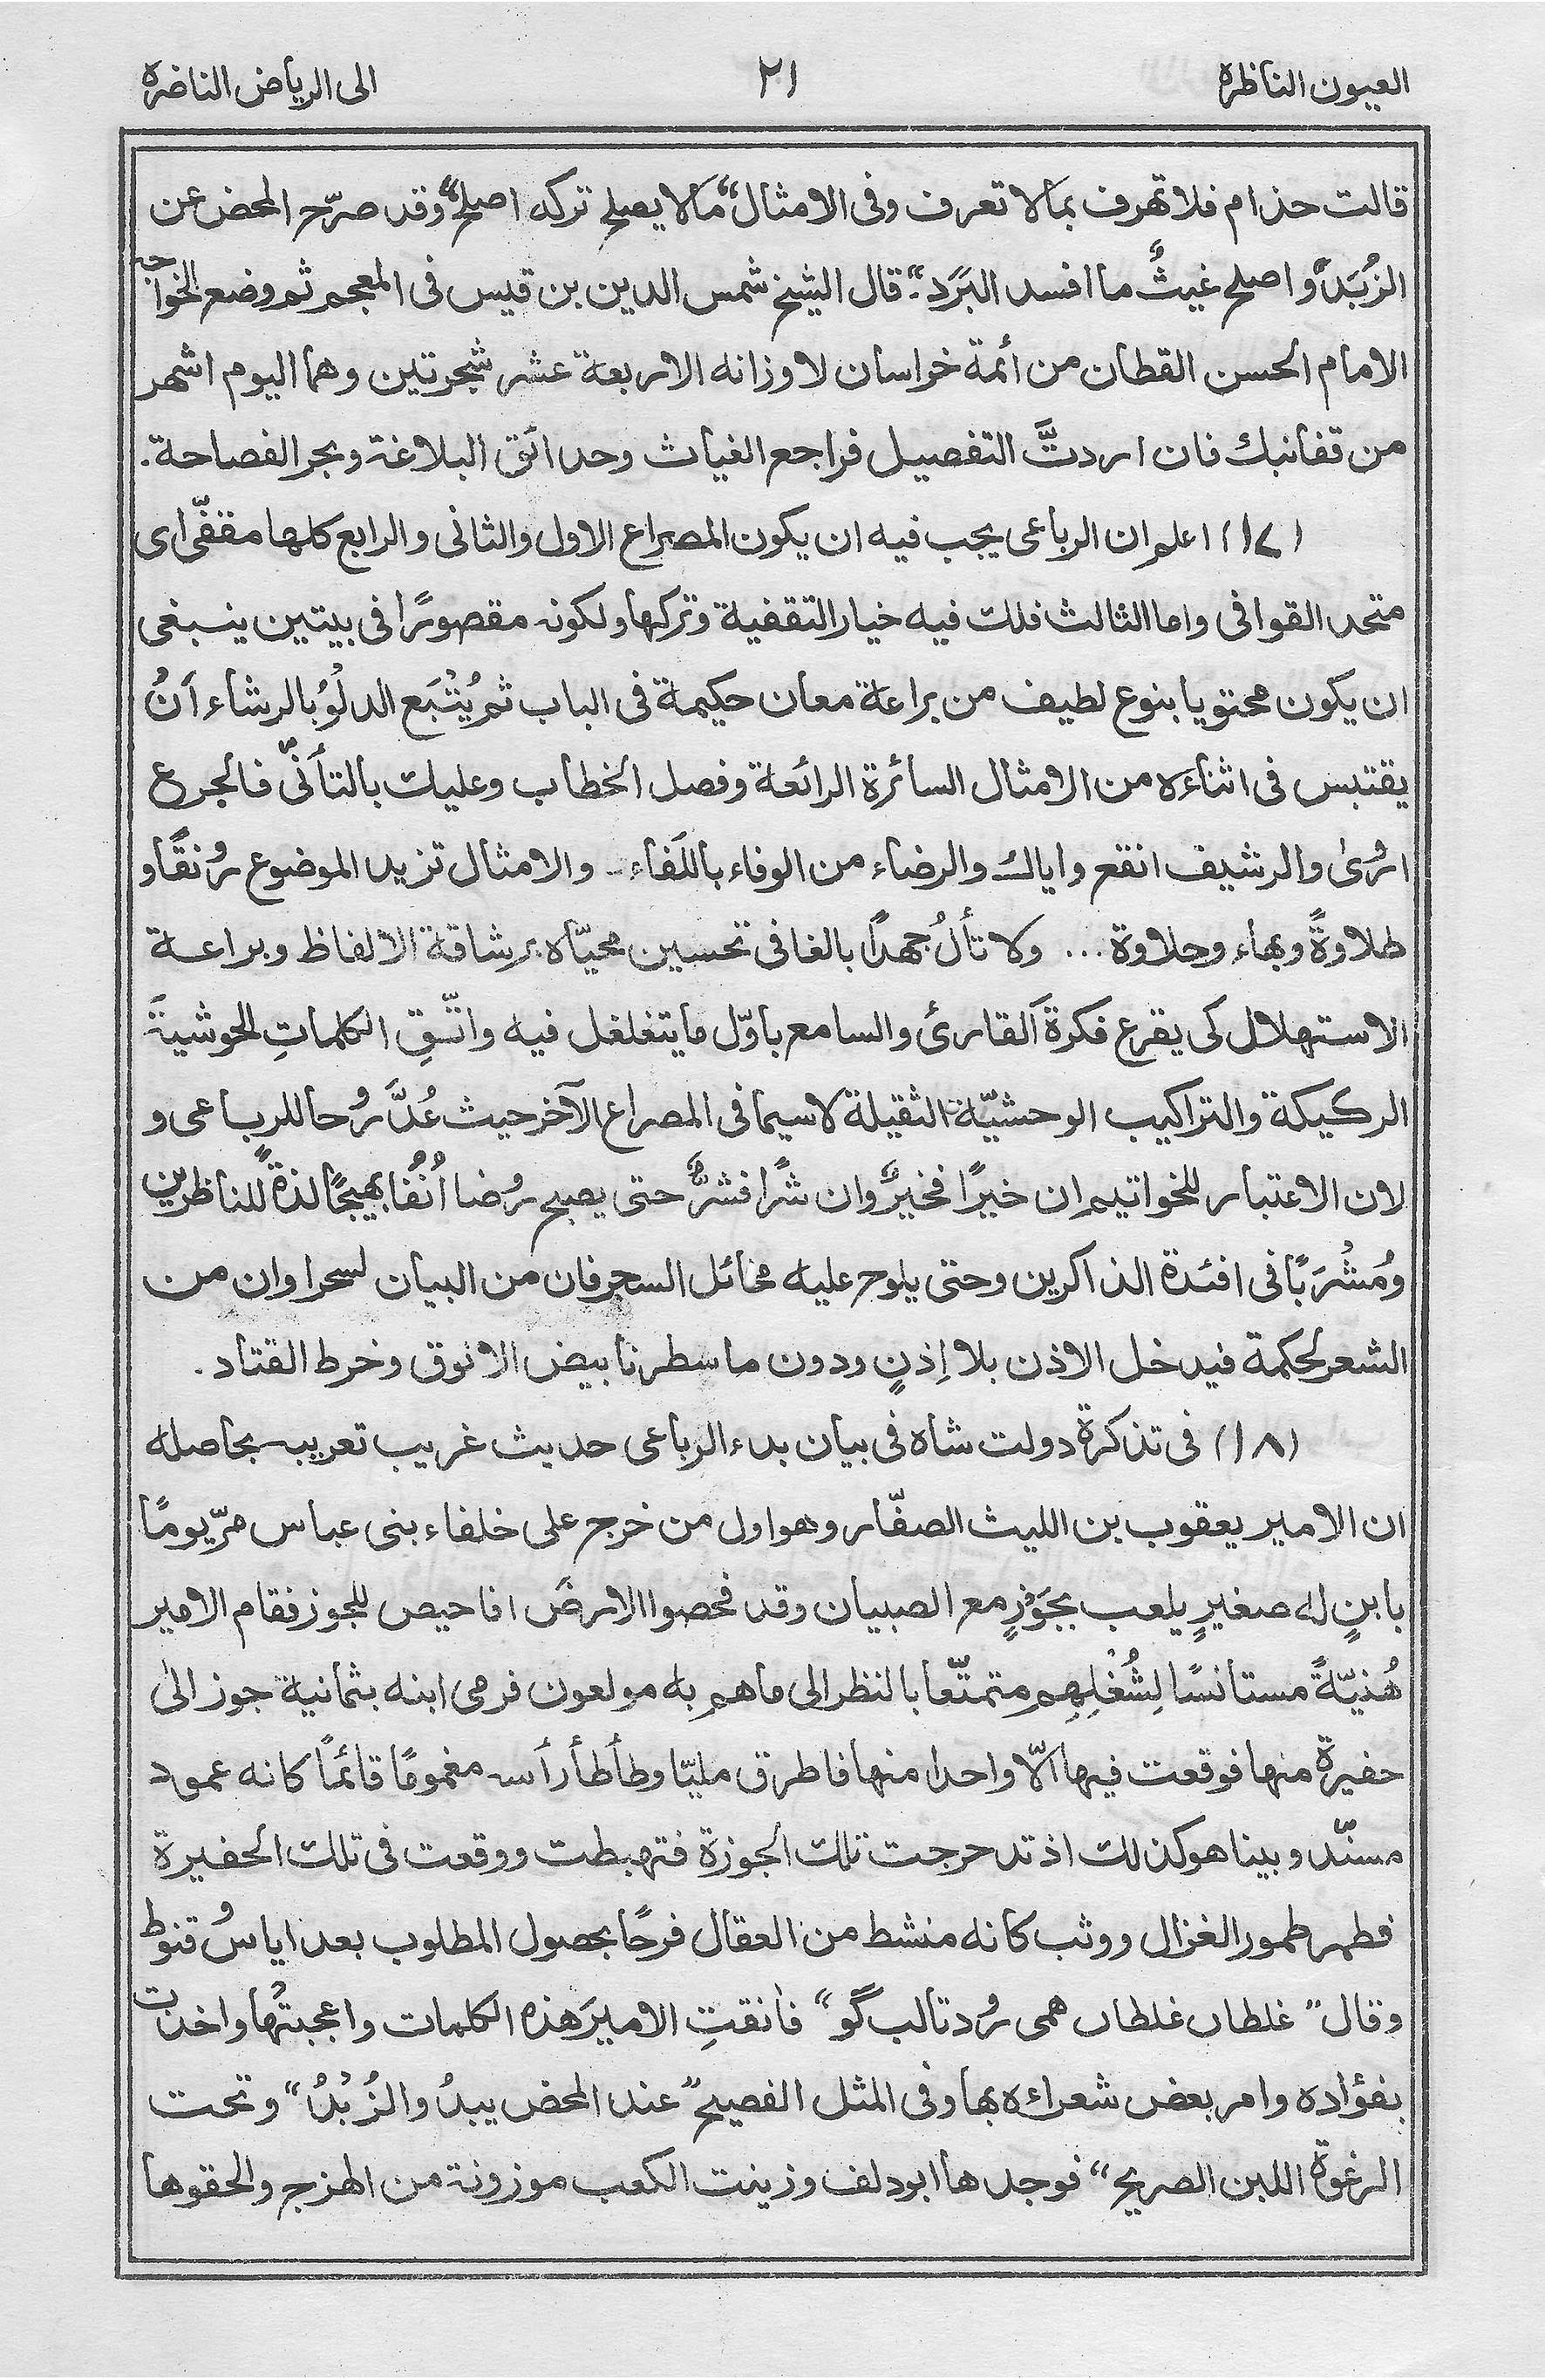 العيون الناظرة
٢١
الى الرياض الناضرة
قالت حذام فلا تهرف بما لا تعرف وفى الامثال “ما لا يصلح تركه اصلح” وقد صرّح المحض عن
الزُبَد و اصلح غيثٌ ما افسد البَرَد”۔ قال الشيخ شمس الدين بن قيس فى المعجم ثم وضع الخواجه
الامام الحسن القطان من أئمة خراسان لاوزانه الاربعة عشر شجرتين وهما اليوم اشهر
من قفانبك فان اردتَّ التفصيل فراجع الغياث وحدائق البلاغة وبحر الفصاحة.
(١٧) اعلم ان الرباعى يجب فيه ان يكون المصراع الاول والثانى والرابع كلها مقفّى اى
متحد القوافى واما الثالث فلك فيه خيار التقفية وتركها ولكونه مقصورًا فى بيتين ينبغى
ان يكون محتويا بنوع لطيف من براعة معان حكيمة فى الباب ثم يُتْبَع الدلْوُ بالرشاء اَنْ
يقتبس فى اثناءه من الامثال السائرة الرائعة وفصل الخطاب وعليك بالتأنّى فالجرع
ارْوىٰ والرشيف انقع واياك والرضاء من الوفاء باللَفاء۔ والامثال تزيد الموضوع روْنقًا و
طلاوةً وبهاء وحلاوة... ولا تألُ جهدًا بالغا فى تحسين محيّاه برشاقة الالفاظ وبراعة
الاستهلال كى يقرع فكرةَ القارئ والسامع باوّل ما يتغلغل فيه واتّقِ الكلماتِ الحوشيةَ
الركيكة والتراكيب الوحشيّة الثقيلة لاسيما فى المصراع الآخر حيث عُدَّ روْحا للرباعى و
لان الاعتبار للخواتيم ان خيرًا فخيرٌ وان شرًا فشرٌّ حتى يصبح روْضا اُنُفًا بهيجًا لذةً للناظرين
ومُشْرَبًا فى افئدة الذاكرين وحتى يلوح عليه مخائل السحر فان من البيان لسحرا وان من
الشعر لحكمة فيدخل الاذن بلا اِذنٍ ودون ما سطرنا بيض الانوق وخرط القتاد.
(١٨) فى تذكرة دولت شاه فى بيان بدء الرباعى حديث غريب تعريبه بحاصله
ان الامير يعقوب بن الليث الصفّار وهو اول من خرج على خلفاء بنى عباس مرّ يومًا
بابنٍ له صغيرٍ يلعب بجَوْزٍ مع الصبيان وقد فحصوا الارضَ افاحيص للجوز فقام الامير
هُنيّةً مستانسًا لِشُغْلِهِم متمتّعا بالنظر الى ما هم به مولعون فرمى ابنه بثمانية جوز الىٰ
حفيرة منها فوقعت فيها الّا واحدا منها فاطرق مليّا وطأطأ رأسه مغمومًا قائمًا كانه عمود
مسنّد وبينا هو كذلك اذ تدحرجت تلك الجوزة فتهبطت ووقعت فى تلك الحفيرة
فطمر طمور الغزال ووثب كانه منشط من العقال فرحًا بحصول المطلوب بعد اياس قنوط
وقال ”غلطاں غلطاں همى روْد تا لب گو“ فانقتِ الاميرَ هذه الكلمات واعجبتْها واخذت
بفؤاده وامر بعض شعراءه بها وفى المثل الفصيح ”عند المحض يبدُ والزُبْدُ“ وتحت
الرغوة اللبن الصريح“ فوجدها ابودلف وزينت الكعب موزونة من الهزج والحقوها